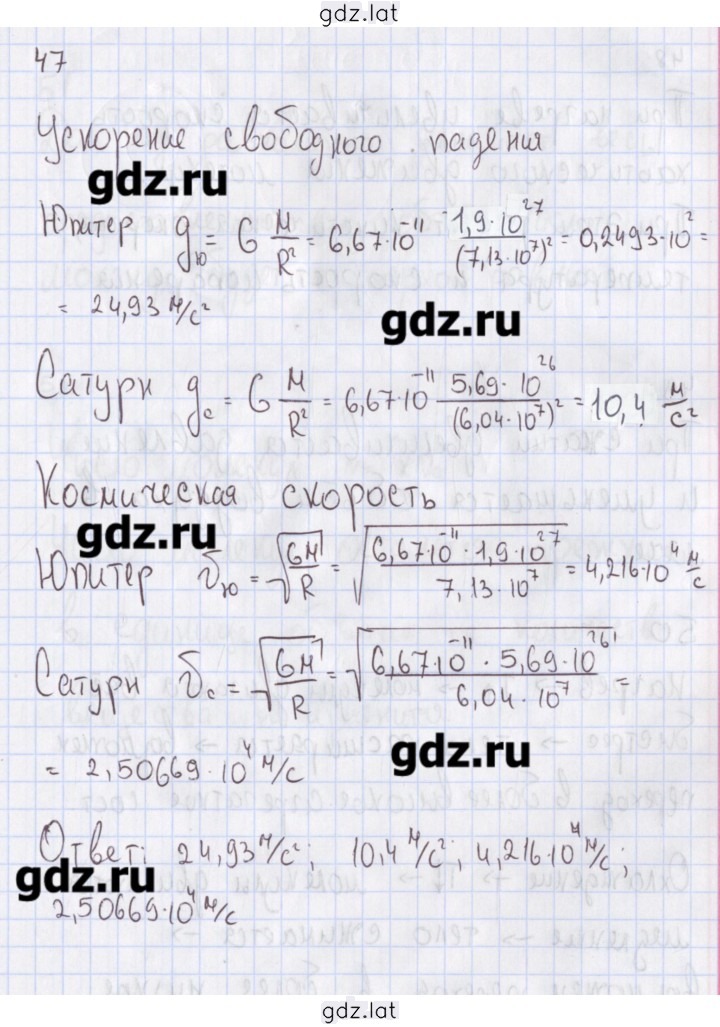 gdz.lat
47
Ускорение свободного падения
gdz.ru
Юпитер g_ю = G M/R² = 6,67·10⁻¹¹ · 1,9·10²⁷/(7,13·10⁷)² = 0,2493·10² =
= 24,93 м/с²
gdz.ru
Сатурн g_с = G M/R² = 6,67·10⁻¹¹ 5,69·10²⁶/(6,04·10⁷)² = 10,4 м/с²
Космическая скорость
gdz.ru
Юпитер v_ю = √(GM/R) = √(6,67·10⁻¹¹·1,9·10²⁷/7,13·10⁷) = 4,216·10⁴ м/с
Сатурн v_с = √(GM/R) = √(6,67·10⁻¹¹·5,69·10²⁶/6,04·10⁷) =
= 2,50669·10⁴ м/с
gdz.ru
Ответ: 24,93 м/с²; 10,4 м/с²; 4,216·10⁴ м/с;
gdz.ru
2,50669·10⁴ м/с
gdz.lat